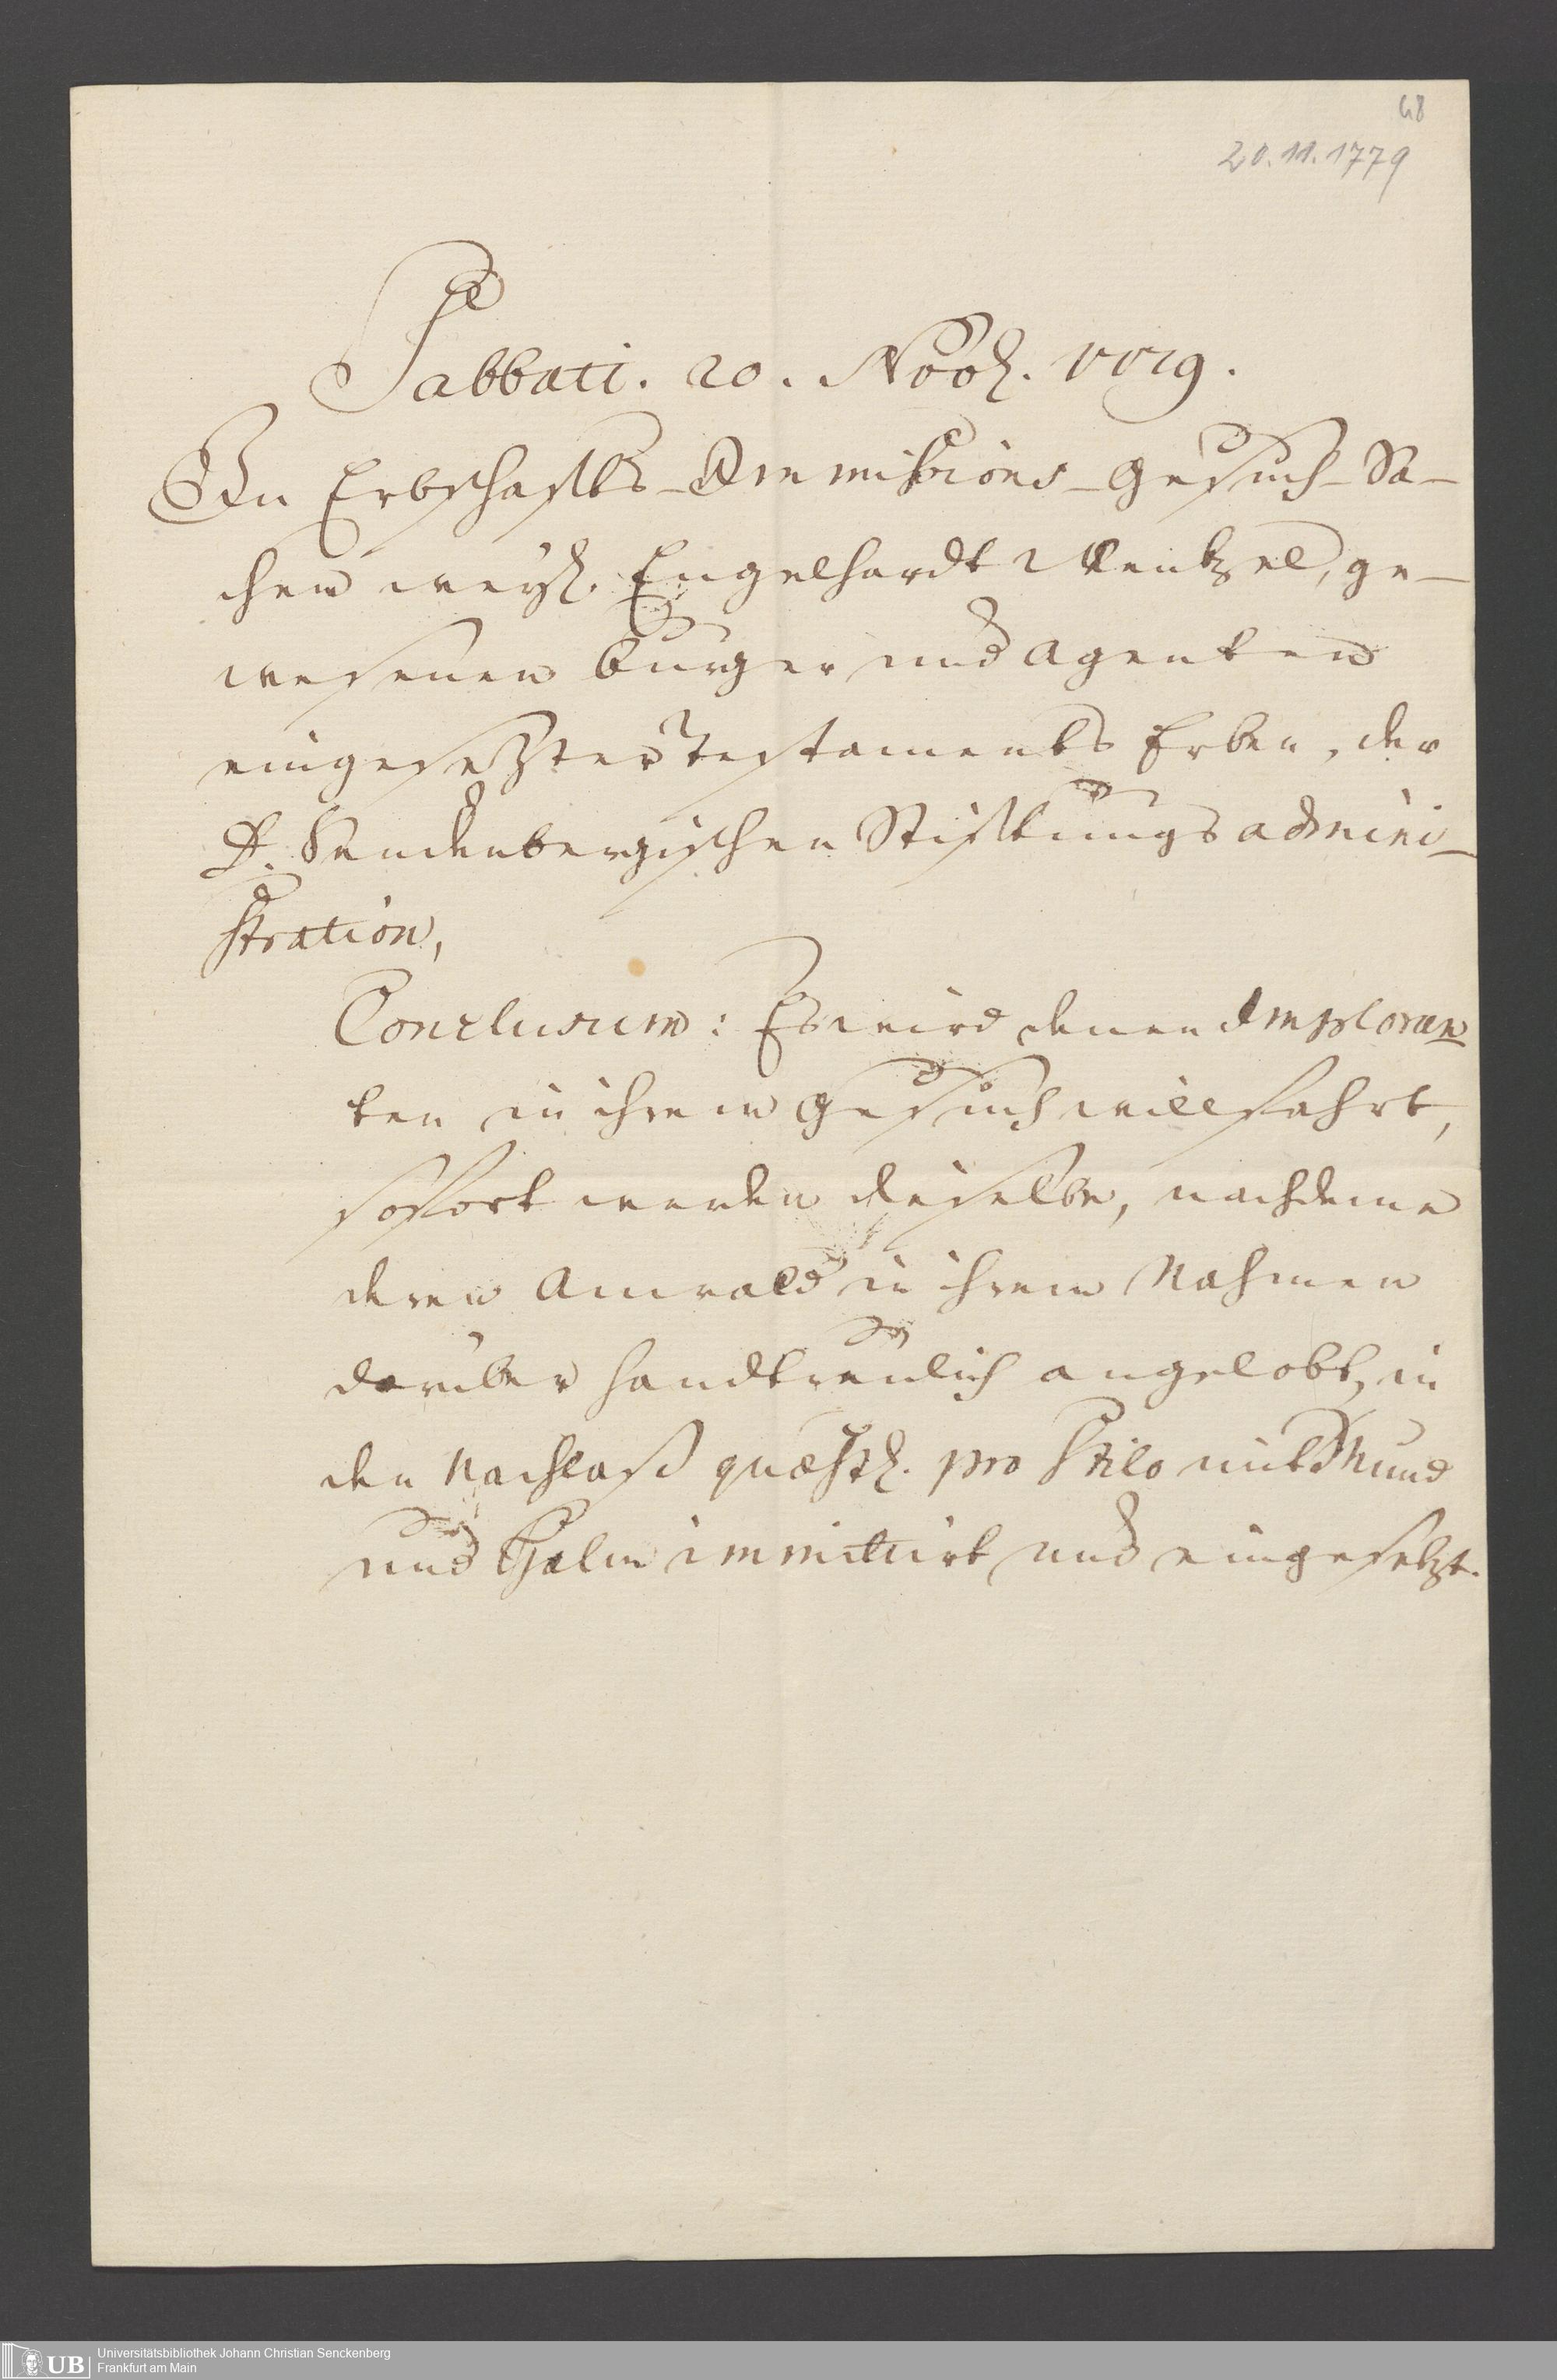 48
20.11.1779
Sabbati. 20. Nov. 1779.
In Erbschaffts-Immissions-Gesuch-Sa-
chen weyl. Engelhardt Wentzel, ge-
wesenen Burger und Agenten
eingesezter Testaments Erben, der
D. Senckenbergischen Stifftungs admini-
stration,
Conclusum: Es wird denen Imploran-
ten in ihrem Gesuch willfahrt,
sofort werden dieselbe, nachdeme
deren Anwald in ihrem Nahmen
darüber handtreulich angelobt, in
den Nachlass quæst. pro Stilo mit Mund
und Halm immittirt und eingesetzt.
UB
Universitätsbibliothek Johann Christian Senckenberg
Frankfurt am Main